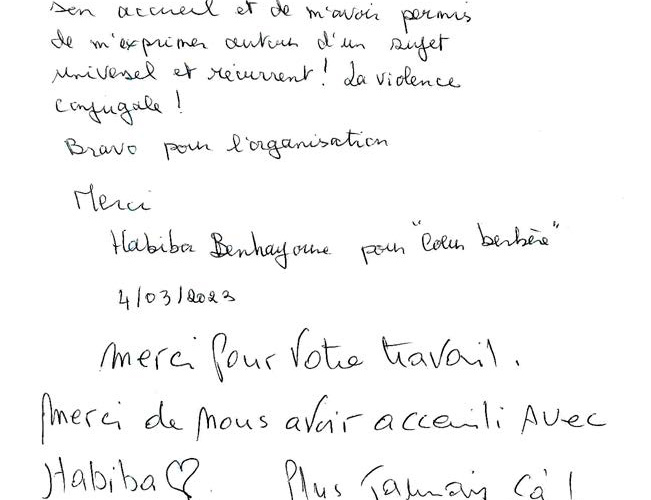 son accueil et de m'avoir permis
de m'exprimer autour d'un sujet
universel et récurrent ! La violence
conjugale !
Bravo pour l'organisation
Merci
Habiba Benhayoune pour "Coeur berbère"
4/03/2023
merci pour votre travail.
merci de nous avoir acceuilli avec
Habiba ♡. Plus jamais ça !